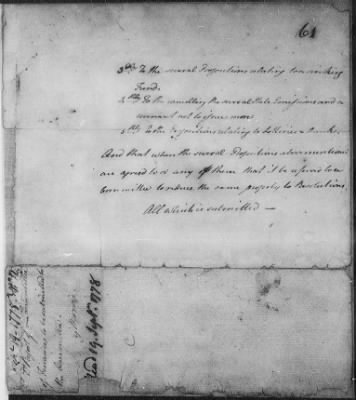 61
3dly To the several Propositions relating to a sinking
Fund.
4thly To the cancelling the several State Emissions and a
covenant not to issue more
5thly To the Propositions relating to Lotteries & Banks.
And that when the several Propositions abovementioned
are agreed to or any of them that it be referred to a
Committee to reduce the same properly to Resolutions
All which is submitted —
Report of
of Finance to be submitted to
the
Read 19 Septr. 1778